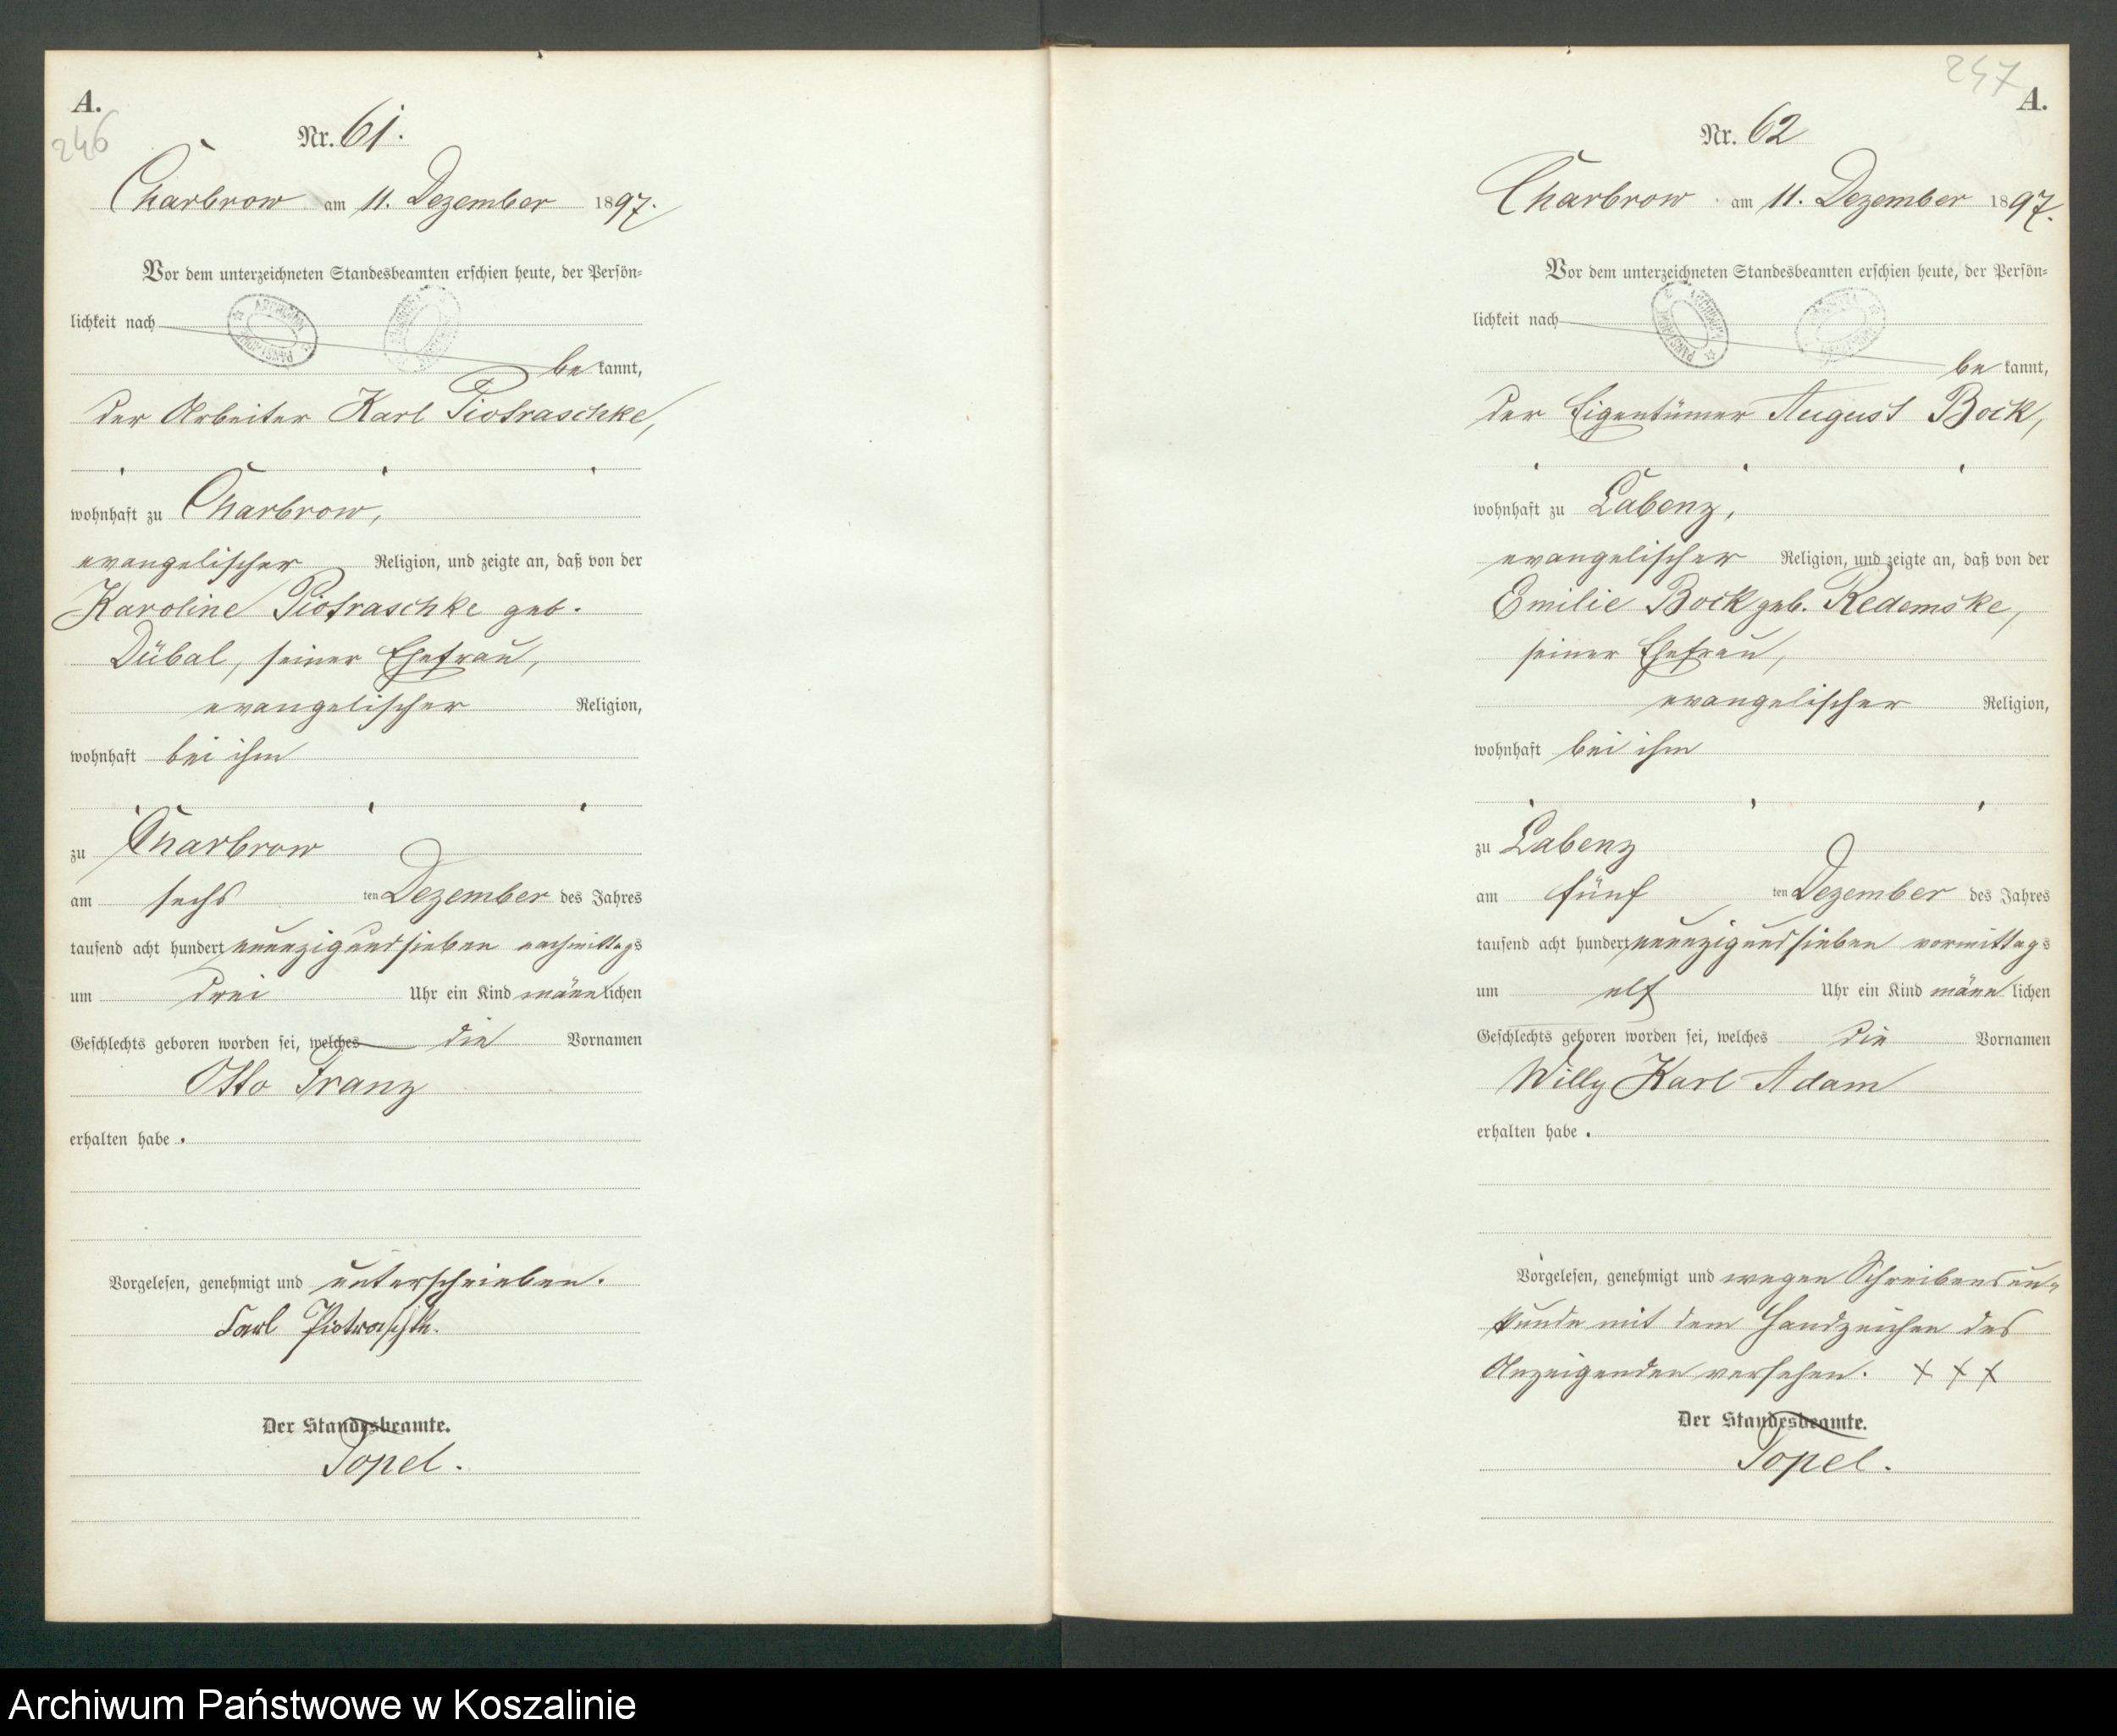 A.
246
Nr. 61.
Charbrow am 11. Dezember 1897.
Vor dem unterzeichneten Standesbeamten erschien heute, der Persön-
lichkeit nach
be kannt,
der Arbeiter Karl Piotraschke,
wohnhaft zu Charbrow,
evangelischer Religion, und zeigte an, daß von der
Karoline Piotraschke geb.
Dübal, seiner Ehefrau,
evangelischer Religion,
wohnhaft bei ihm
zu Charbrow
am sechs ten Dezember des Jahres
tausend acht hundert neunzig und sieben nachmittags
um drei Uhr ein Kind männlichen
Geschlechts geboren worden sei, welches die Vornamen
Otto Franz
erhalten habe.
Vorgelesen, genehmigt und unterschrieben.
Carl Piotraschk.
Der Standesbeamte.
Topel.
247
A.
Nr. 62
Charbrow am 11. Dezember 1897.
Vor dem unterzeichneten Standesbeamten erschien heute, der Persön-
lichkeit nach
be kannt,
der Eigentümer August Bock,
wohnhaft zu Labenz,
evangelischer Religion, und zeigte an, daß von der
Emilie Bock geb. Redemske,
seiner Ehefrau,
evangelischer Religion,
wohnhaft bei ihm
zu Labenz
am fünf ten Dezember des Jahres
tausend acht hundert neunzig und sieben vormittags
um elf Uhr ein Kind männlichen
Geschlechts geboren worden sei, welches die Vornamen
Willy Karl Adam
erhalten habe.
Vorgelesen, genehmigt und wegen Schreibensun-
kunde mit dem Handzeichen des
Anzeigenden versehen. + + +
Der Standesbeamte.
Topel.
Archiwum Państwowe w Koszalinie